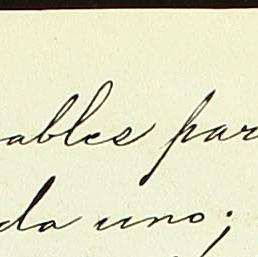 ables par
da uno;